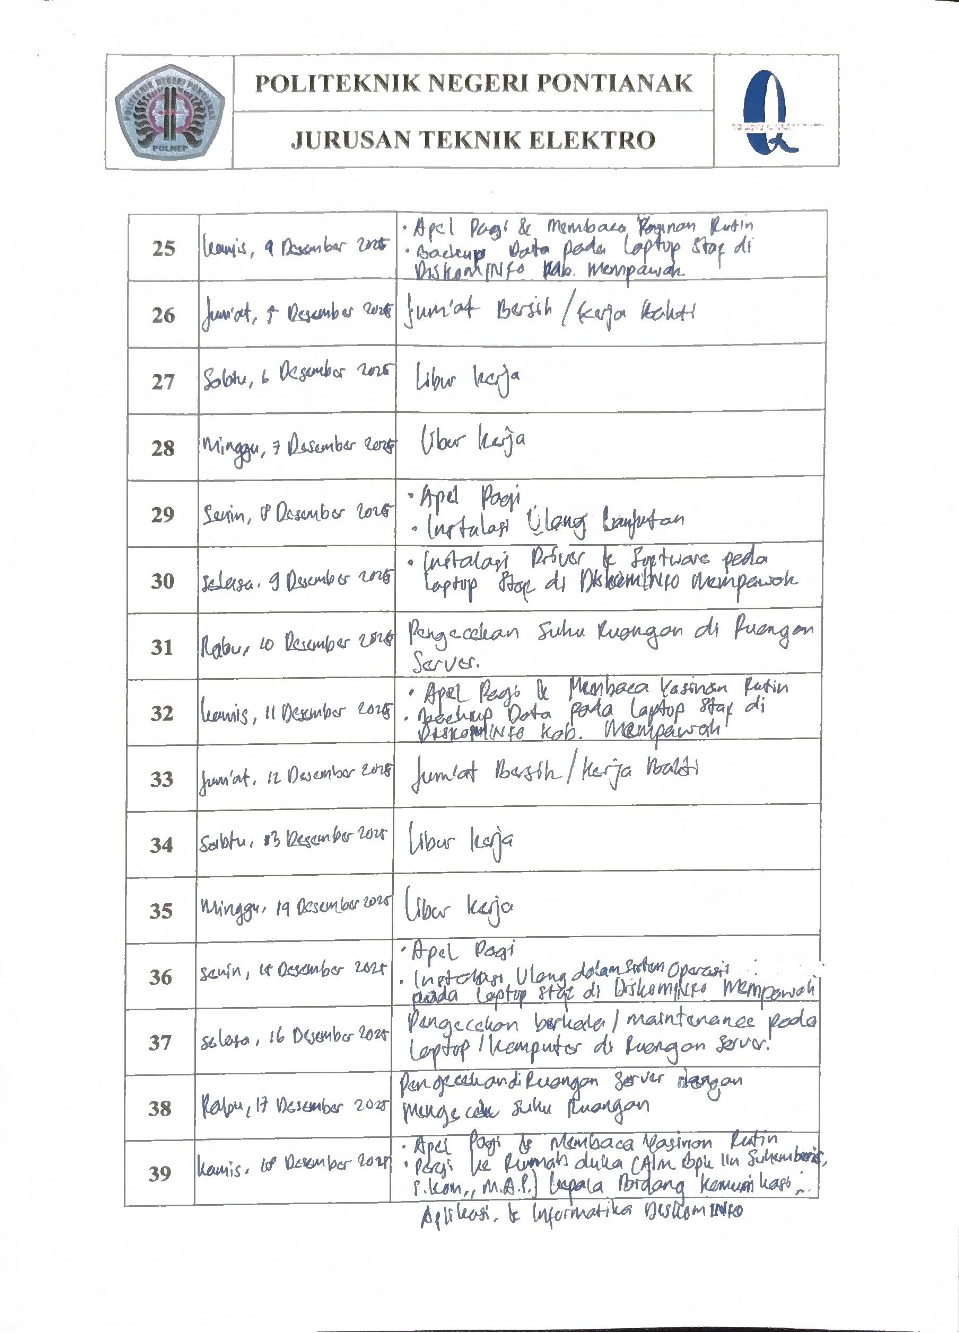 POLITEKNIK NEGERI PONTIANAK
JURUSAN TEKNIK ELEKTRO
POLNEP
25 Kamis, 4 Desember 2025
• Apel Pagi & Membaca Yasinan Rutin
• Backup Data pada Laptop Staf di
DISKOMINFO Kab. Mempawah
26 Jum'at, 5 Desember 2025 Jum'at Bersih / Kerja Bakti
27 Sabtu, 6 Desember 2025 Libur kerja
28 Minggu, 7 Desember 2025 Libur kerja
29 Senin, 8 Desember 2025
• Apel Pagi
• Instalasi Ulang Lanjutan
30 Selasa, 9 Desember 2025
• Instalasi Driver & Software pada
Laptop Staf di DISKOMINFO Mempawah
31 Rabu, 10 Desember 2025
Pengecekan Suhu Ruangan di Ruangan
Server.
32 Kamis, 11 Desember 2025
• Apel Pagi & Membaca Yasinan Rutin
• Backup Data pada Laptop Staf di
DISKOMINFO Kab. Mempawah
33 Jum'at, 12 Desember 2025 Jum'at Bersih / Kerja Bakti
34 Sabtu, 13 Desember 2025 Libur kerja
35 Minggu, 14 Desember 2025 Libur kerja
36 Senin, 15 Desember 2025
• Apel Pagi
• Instalasi Ulang dalam Sistem Operasi
pada Laptop Staf di DISKOMINFO Mempawah
37 Selasa, 16 Desember 2025
Pengecekan berkala / maintenance pada
Laptop / Komputer di Ruangan Server.
38 Rabu, 17 Desember 2025
Pengecekan di Ruangan Server dengan
mengecek Suhu Ruangan
39 Kamis, 18 Desember 2025
• Apel Pagi & Membaca Yasinan Rutin
• Pergi ke Rumah duka (Alm Bpk
S.Kom., M.A.P.) Kepala Bidang Komunikasi
Aplikasi, & Informatika DISKOMINFO